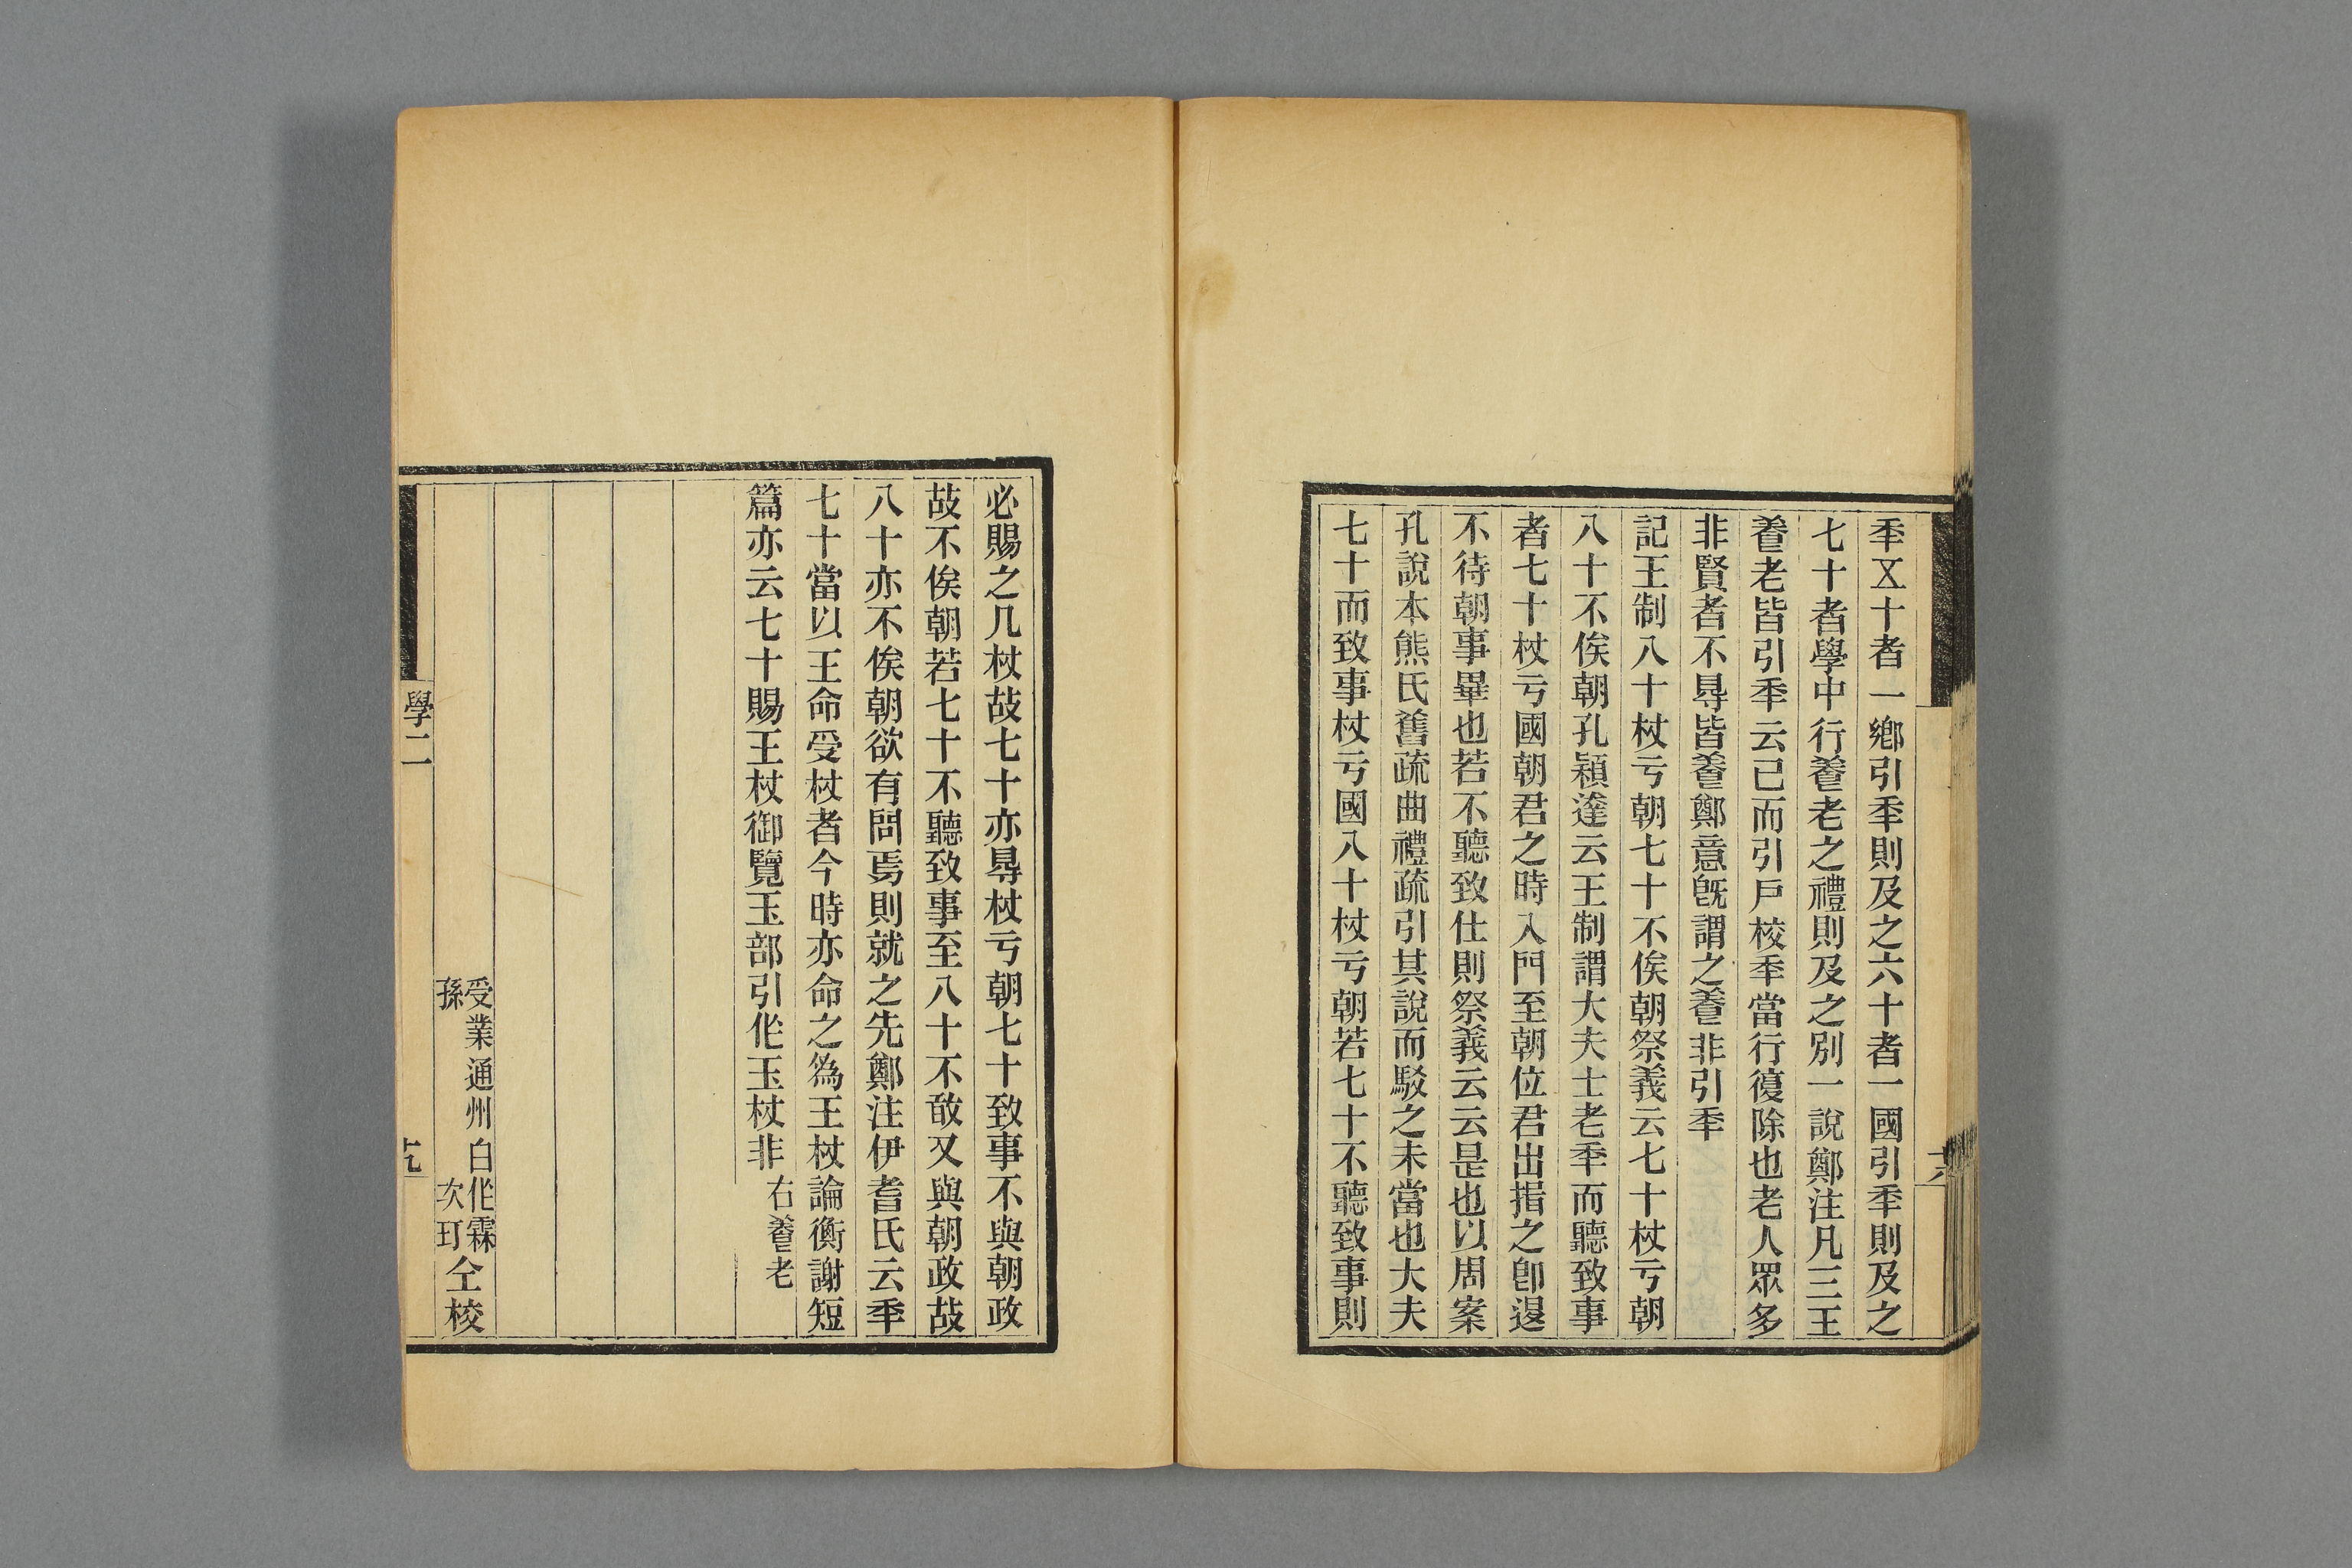 秊㐅十者一鄉引秊則及之六十者一國引秊則及之
七十者學中行養老之禮則及之別一說鄭注凡三王
養老皆引秊云已而引戶校秊當行復除也老人眾多
非賢者不㝵皆養鄭意旣謂之養非引秊
記王制八十杖亏朝七十不俟朝祭義云七十杖亏朝
八十不俟朝孔穎達云王制謂大夫士老秊而聽致事
者七十杖亏國朝君之時入門至朝位君出揖之卽退
不待朝事畢也若不聽致仕則祭義云云是也以周案
孔說本熊氏舊疏曲禮疏引其說而駁之未當也大夫
七十而致事杖亏國八十杖亏朝若七十不聽致事則
十八
必賜之几杖故七十亦㝵杖亏朝七十致事不與朝政
故不俟朝若七十不聽致事至八十不敢又與朝政故
八十亦不俟朝欲有問焉則就之先鄭注伊耆氏云秊
七十當以王命受杖者今時亦命之為王杖論衡謝短
篇亦云七十賜王杖御覽玉部引作玉杖非
右養老
受業通州白作霖
孫次玎
仝校
學二
十九